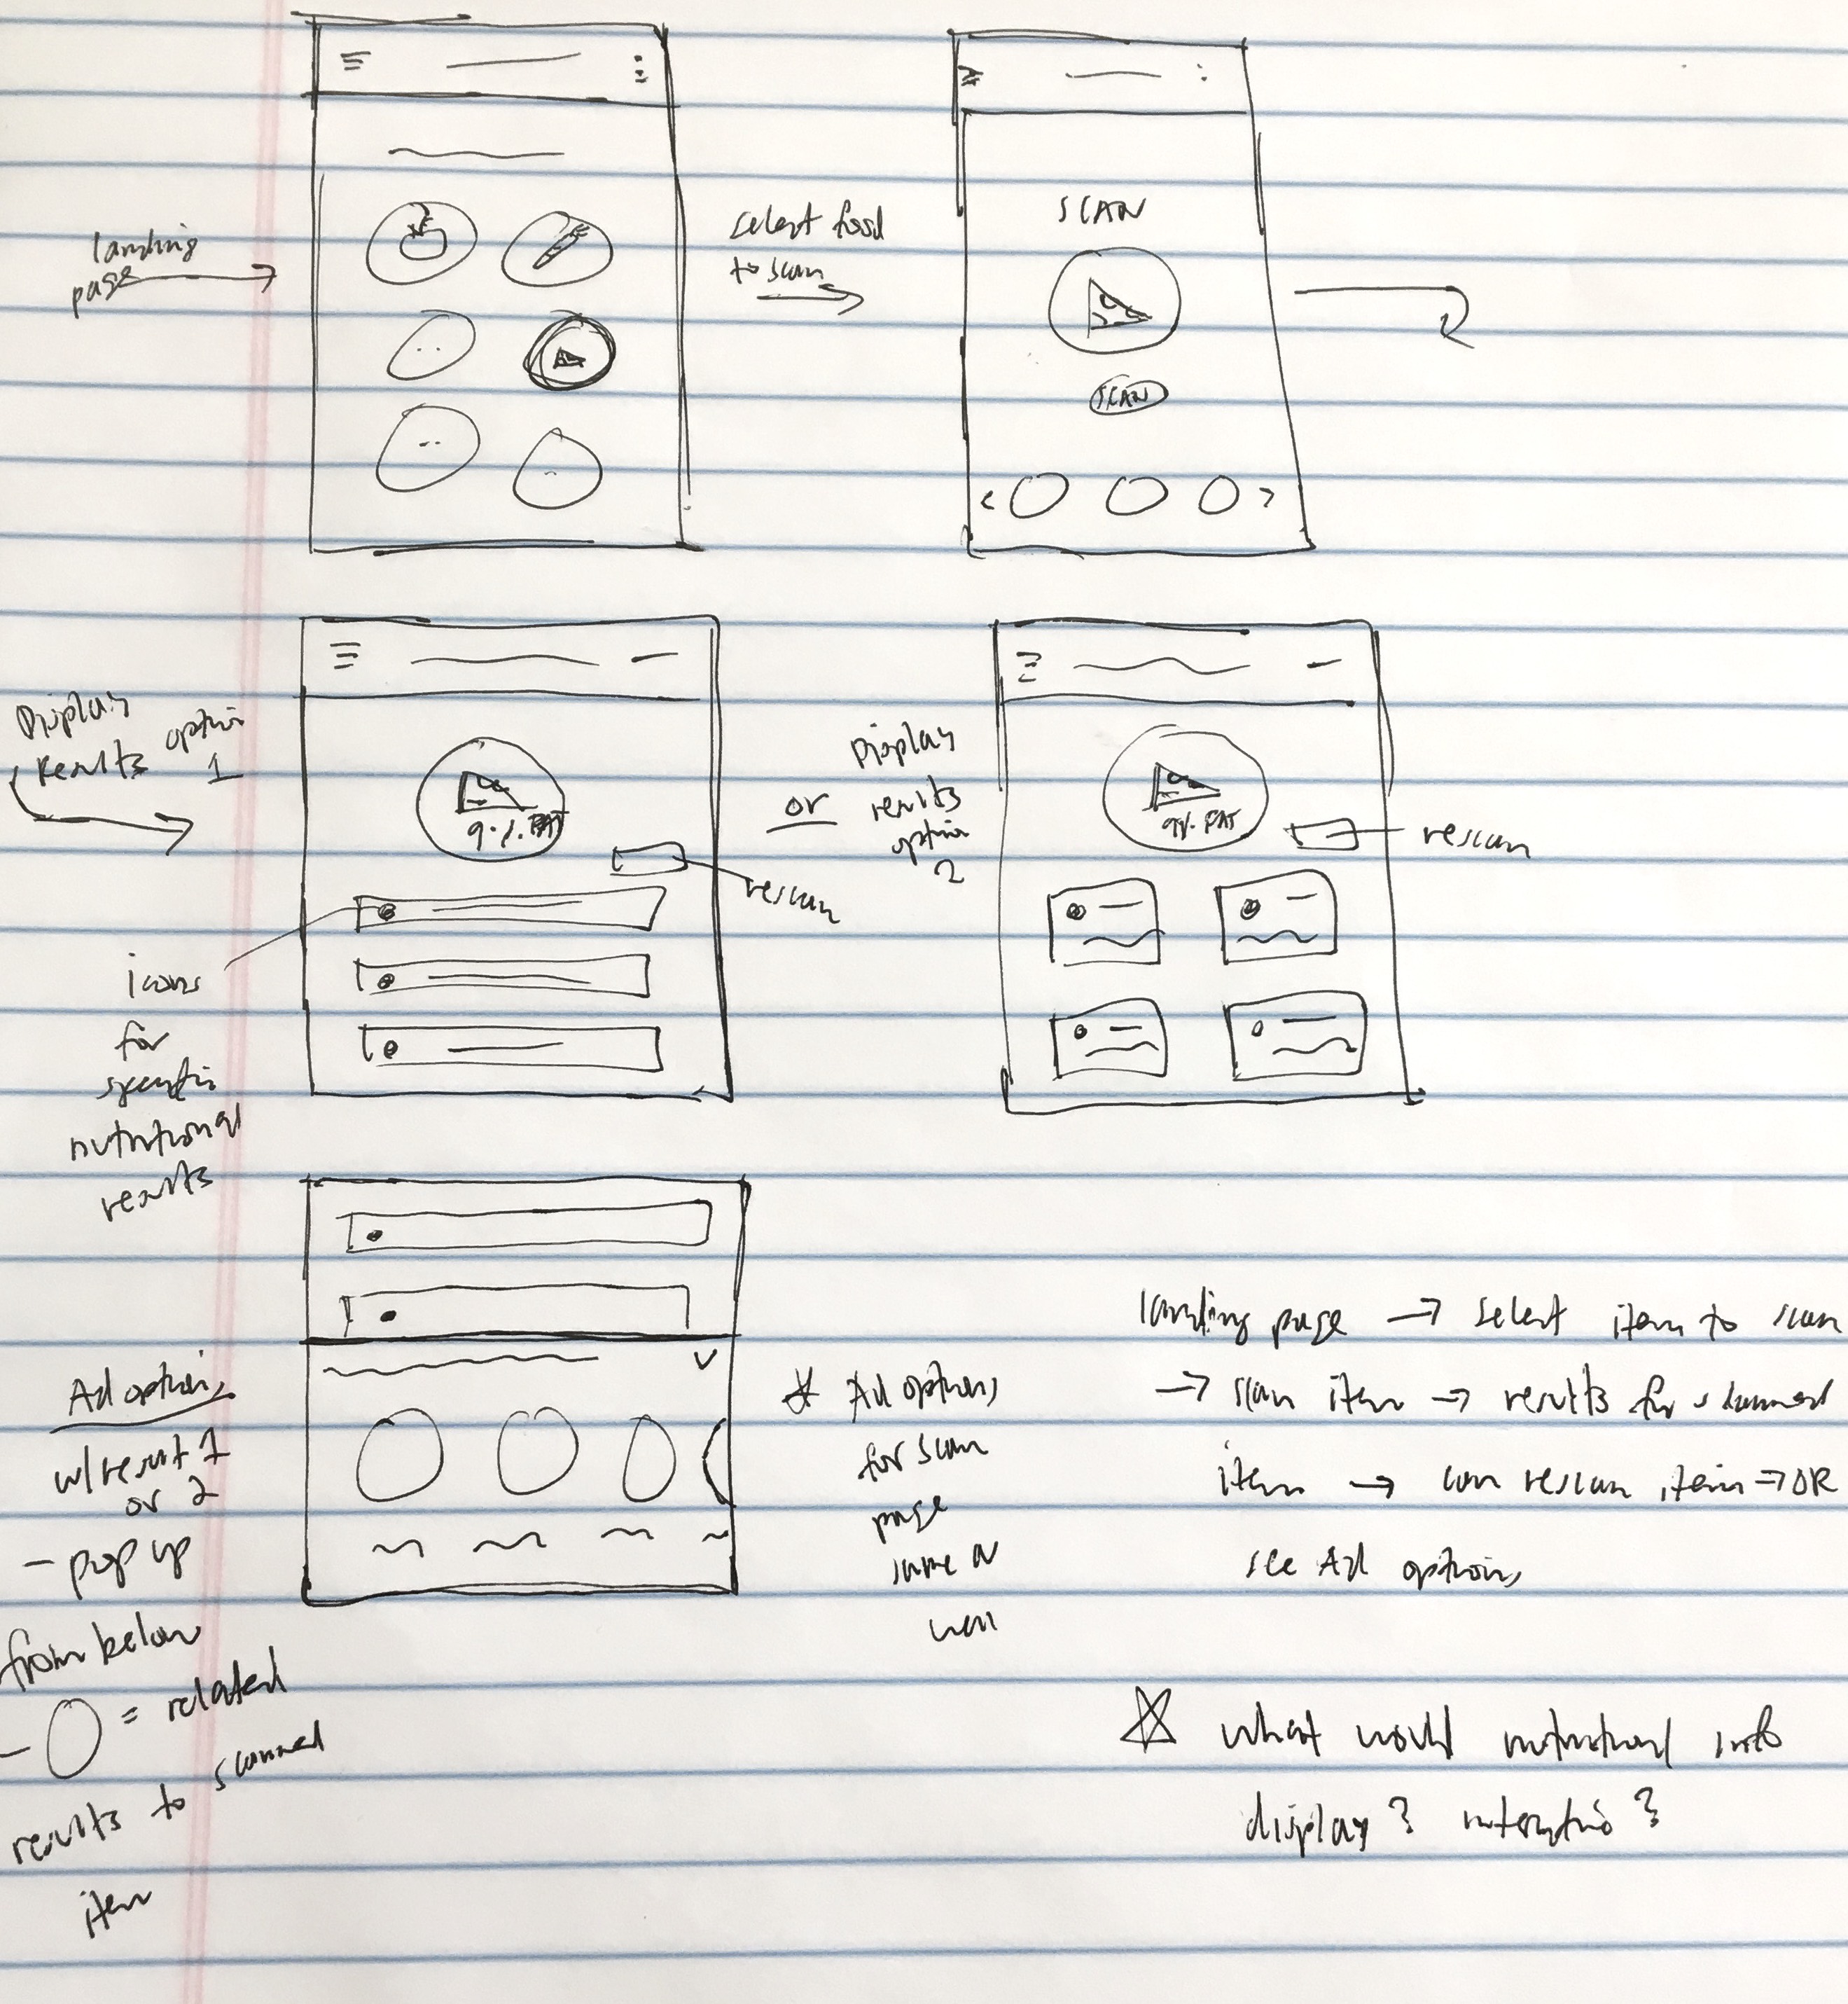 landing
page
select food
to scan
SCAN
SCAN
Display
results option
1
9% FAT
rescan
icons
for
specific
nutritional
results
or
Display
results
option
2
9% FAT
rescan
Ad options
w/ result 1
or 2
- pop up
from below
- O = related
results to scanned
item
Ad options
for scan
page
same as
well
landing page → select item to scan
→ scan item → results for scanned
item → can rescan item → OR
see Ad options
what would nutritional info
display?